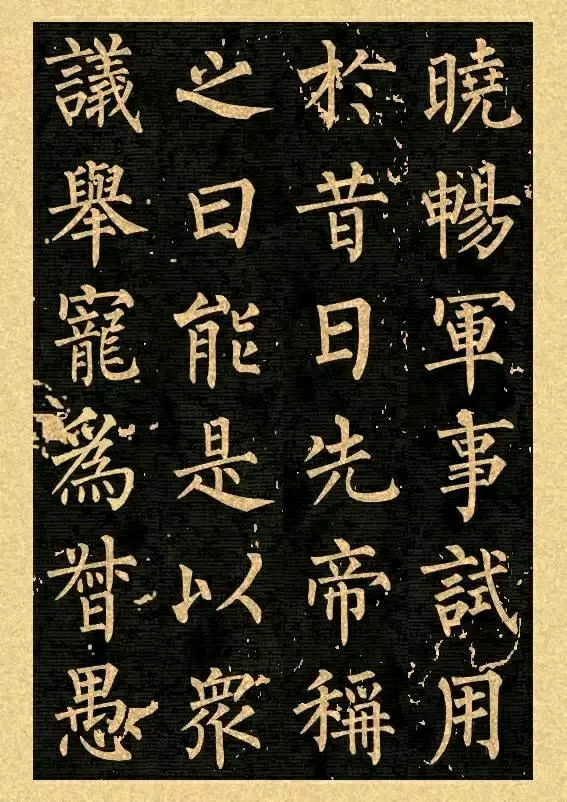 曉暢軍事試用
於昔日先帝稱
之曰能是以衆
議舉寵爲督愚